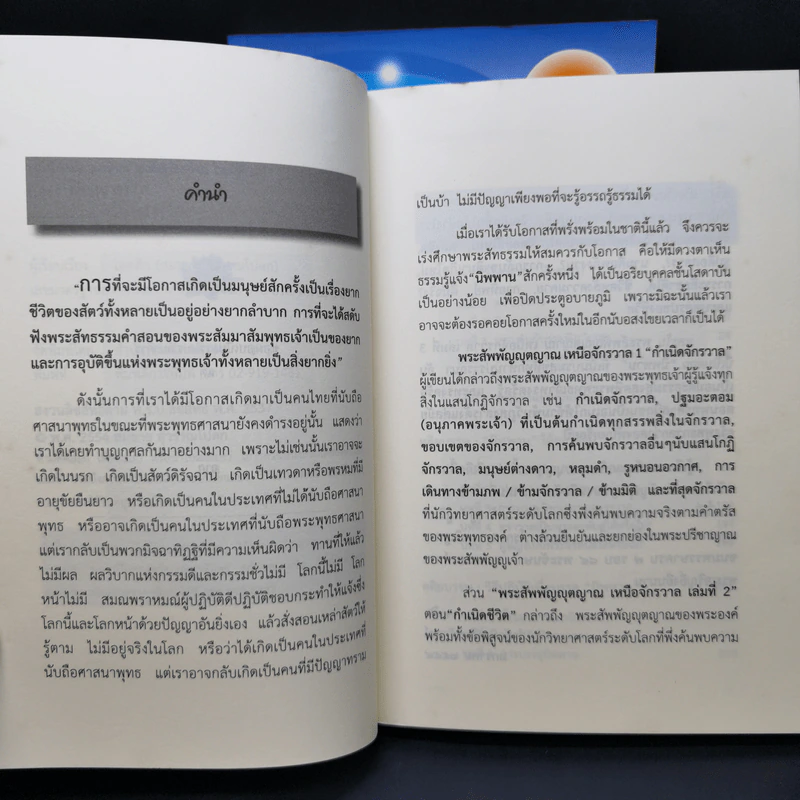 คำนำ
"การที่จะมีโอกาสเกิดเป็นมนุษย์สักครั้งเป็นเรื่องยาก
ชีวิตของสัตว์ทั้งหลายเป็นอยู่อย่างยากลำบาก การที่จะได้สดับ
ฟังพระสัทธรรมคำสอนของพระสัมมาสัมพุทธเจ้าเป็นของยาก
และการอุบัติขึ้นแห่งพระพุทธเจ้าทั้งหลายเป็นสิ่งยากยิ่ง"
ดังนั้นการที่เราได้มีโอกาสเกิดมาเป็นคนไทยที่นับถือ
ศาสนาพุทธในขณะที่พระพุทธศาสนายังคงดำรงอยู่นั้น แสดงว่า
เราได้เคยทำบุญกุศลกันมาอย่างมาก เพราะไม่เช่นนั้นเราอาจจะ
เกิดในนรก เกิดเป็นสัตว์ดิรัจฉาน เกิดเป็นเทวดาหรือพรหมที่มี
อายุขัยยืนยาว หรือเกิดเป็นคนในประเทศที่ไม่ได้นับถือศาสนา
พุทธ หรืออาจเกิดเป็นคนในประเทศที่นับถือพระพุทธศาสนา
แต่เรากลับเป็นพวกมิจฉาทิฏฐิที่มีความเห็นผิดว่า ทานที่ให้แล้ว
ไม่มีผล ผลวิบากแห่งกรรมดีและกรรมชั่วไม่มี โลกนี้ไม่มี โลก
หน้าไม่มี สมณพราหมณ์ผู้ปฏิบัติดีปฏิบัติชอบกระทำให้แจ้งซึ่ง
โลกนี้และโลกหน้าด้วยปัญญาอันยิ่งเอง แล้วสั่งสอนเหล่าสัตว์ให้
รู้ตาม ไม่มีอยู่จริงในโลก หรือว่าได้เกิดเป็นคนในประเทศที่
นับถือศาสนาพุทธ แต่เราอาจกลับเกิดเป็นคนที่มีปัญญาทราม
เป็นบ้า ไม่มีปัญญาเพียงพอที่จะรู้อรรถรู้ธรรมได้
เมื่อเราได้รับโอกาสที่พรั่งพร้อมในชาตินี้แล้ว จึงควรจะ
เร่งศึกษาพระสัทธรรมให้สมควรกับโอกาส คือให้มีดวงตาเห็น
ธรรมรู้แจ้ง"นิพพาน"สักครั้งหนึ่ง ได้เป็นอริยบุคคลชั้นโสดาบัน
เป็นอย่างน้อย เพื่อปิดประตูอบายภูมิ เพราะมิฉะนั้นแล้วเรา
อาจจะต้องรอคอยโอกาสครั้งใหม่ในอีกนับอสงไขยเวลาก็เป็นได้
พระสัพพัญญุตญาณ เหนือจักรวาล 1 "กำเนิดจักรวาล"
ผู้เขียนได้กล่าวถึงพระสัพพัญญุตญาณของพระพุทธเจ้าผู้รู้แจ้งทุก
สิ่งในแสนโกฏิจักรวาล เช่น กำเนิดจักรวาล, ปฐมอะตอม
(อนุภาคพระเจ้า) ที่เป็นต้นกำเนิดทุกสรรพสิ่งในจักรวาล,
ขอบเขตของจักรวาล, การค้นพบจักรวาลอื่นๆนับแสนโกฏิ
จักรวาล, มนุษย์ต่างดาว, หลุมดำ, รูหนอนอวกาศ, การ
เดินทางข้ามภพ / ข้ามจักรวาล / ข้ามมิติ และที่สุดจักรวาล
ที่นักวิทยาศาสตร์ระดับโลกซึ่งพึ่งค้นพบความจริงตามคำตรัส
ของพระพุทธองค์ ต่างล้วนยืนยันและยกย่องในพระปรีชาญาณ
ของพระสัพพัญญูเจ้า
ส่วน "พระสัพพัญญุตญาณ เหนือจักรวาล เล่มที่ 2"
ตอน"กำเนิดชีวิต" กล่าวถึง พระสัพพัญญุตญาณของพระองค์
พร้อมทั้งข้อพิสูจน์ของนักวิทยาศาสตร์ระดับโลกที่พึ่งค้นพบความ